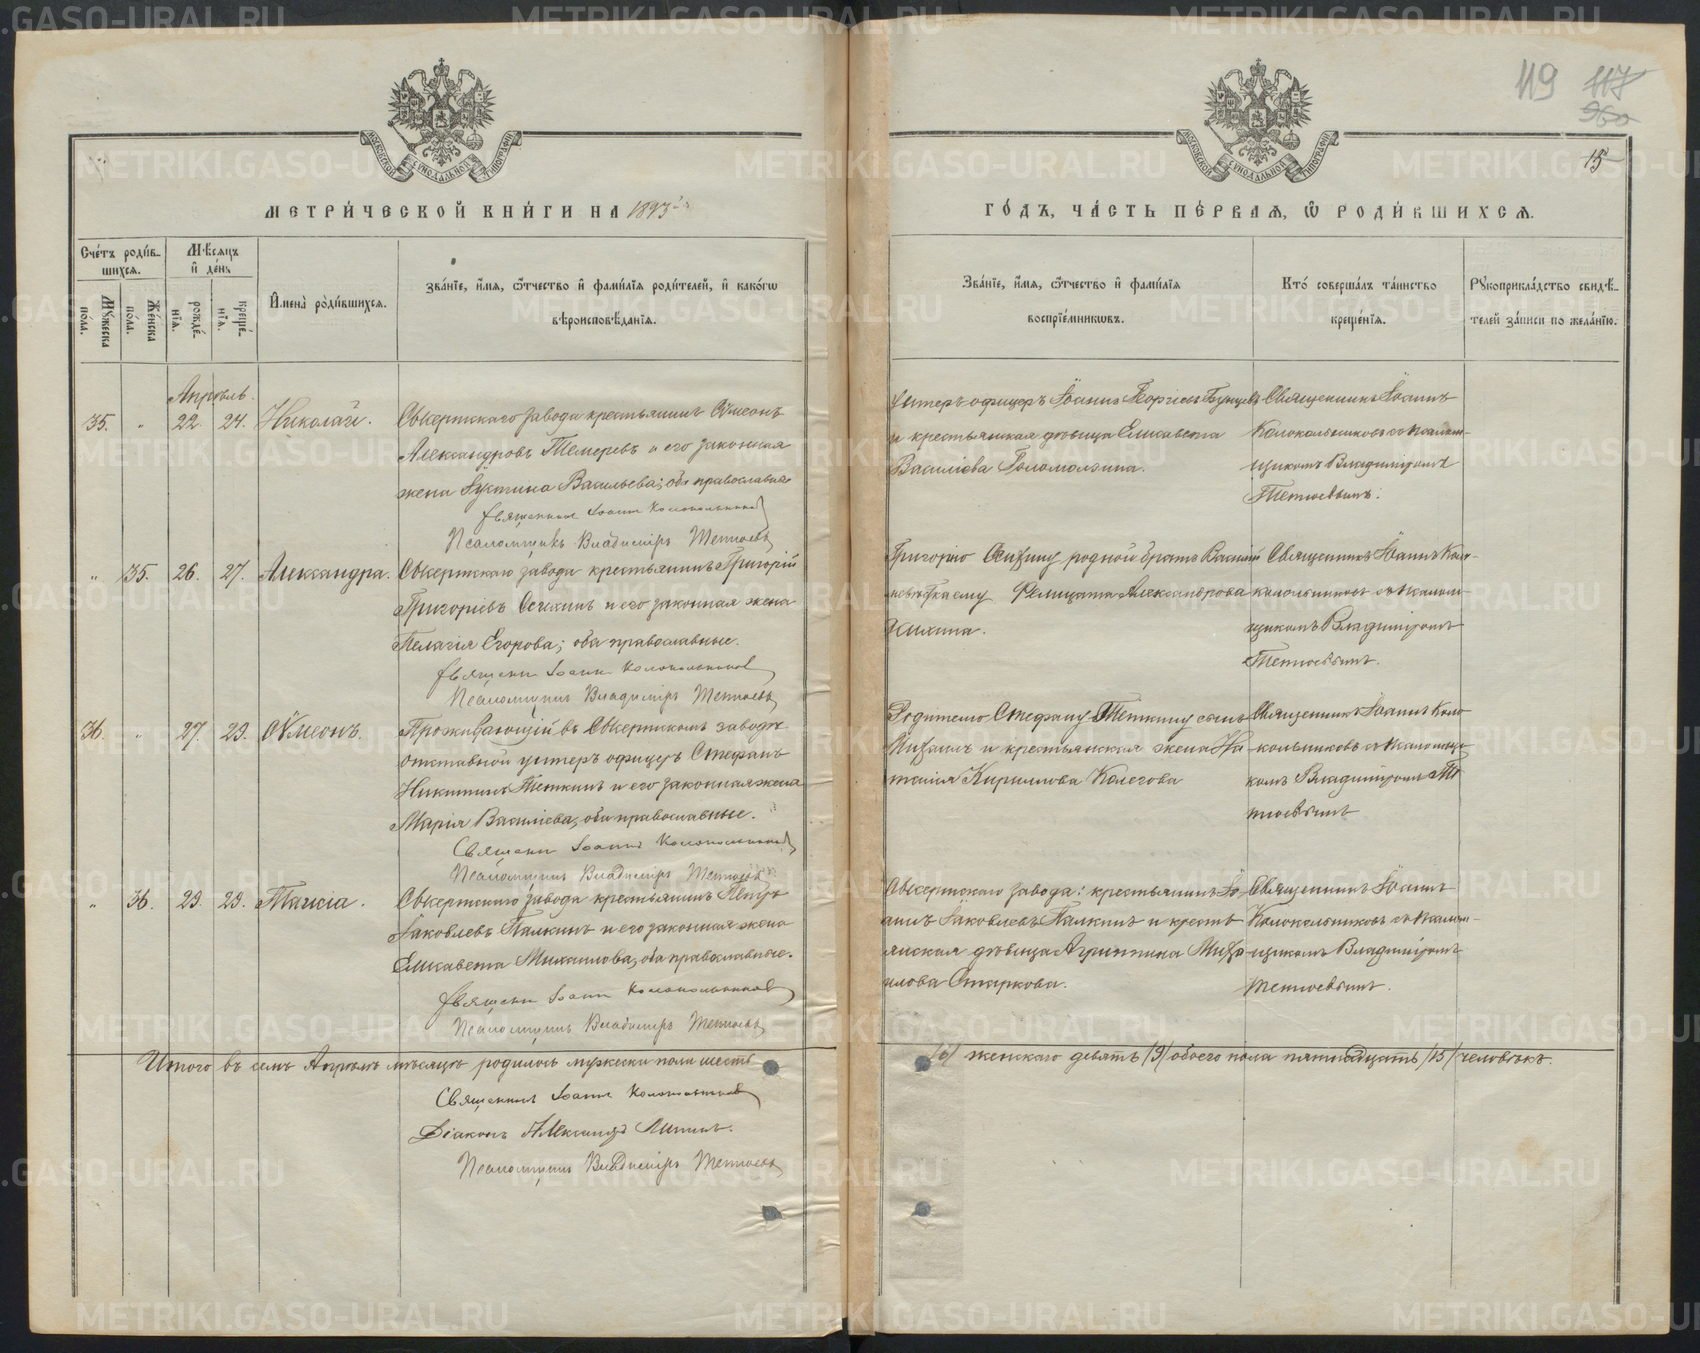 119 117
960
15
МЕТРИ́ЧЕСКОЙ КНИ́ГИ НА 1893 й
ГО́ДЪ, ЧА́СТЬ ПЕ́РВАЯ, Ѡ҆ РОДИ́ВШИХСЯ.
МОСКОВСКОЙ СѴНОДАЛЬНОЙ ТИПОГРАФІИ
МОСКОВСКОЙ СѴНОДАЛЬНОЙ ТИПОГРАФІИ
Сче́тъ роди́в-
шихся.
Му́жеска по́ла.
Же́нска по́ла.
Мѣ́сяцъ и҆ де́нь
рожде́нїя.
креще́нїя.
И҆мена̀ роди́вшихся.
Зва́нїе, и҆́мя, ѻ҆́тчество и҆ фами́лїя роди́телей, и҆ како́гѡ
вѣроисповѣ́данїя.
Зва́нїе, и҆́мя, ѻ҆́тчество и҆ фами́лїя
воспрїе́мникѡвъ.
Кто̀ соверша́лъ та́инство
креще́нїя.
Рꙋкоприкла́дство свидѣ́-
телей за́писи по жела́нїю.
Апрѣль.
35. " 22. 24. Николай.
Сысертскаго завода крестьянинъ Сѵмеонъ
Александровъ Темеревъ и его законная
жена Іустина Васильева; оба православные
Священникъ Іоаннъ Колокольниковъ
Псаломщикъ Владиміръ Тетюевъ
Унтеръ офицеръ Іоаннъ Георгіевъ
и крестьянская дѣвица Елисавета
Василіева Голомолзина.
Священникъ Іоаннъ
Колокольниковъ съ псалом-
щикомъ Владиміромъ
Тетюевымъ.
" 35. 26. 27. Александра.
Сысертскаго завода крестьянинъ Григорій
Григоріевъ и его законная жена
Пелагія Егорова; оба православные.
Священникъ Іоаннъ Колокольниковъ
Псаломщикъ Владиміръ Тетюевъ
Григорію родной братъ Василій
невѣстка ему Фелицата Александрова
Священникъ Іоаннъ Коло-
кольниковъ съ псалом-
щикомъ Владиміромъ
Тетюевымъ.
36. " 27. 29. Сѵмеонъ.
Проживающій въ Сысертскомъ заводѣ
отставной унтеръ офицеръ Стефанъ
Никитинъ Теткинъ и его законная жена
Марія Василіева, оба православные.
Священникъ Іоаннъ Колокольниковъ
Псаломщикъ Владиміръ Тетюевъ
Родителю Стефану Теткину сынъ
Михаилъ и крестьянская жена На-
талія Кириллова Колегова
Священникъ Іоаннъ Коло-
кольниковъ съ псаломщи-
комъ Владиміромъ Те-
тюевымъ
" 36. 29. 29. Таисія.
Сысертскаго завода крестьянинъ Петръ
Іаковлевъ Палкинъ и его законная жена
Елисавета Михаилова, оба православные.
Священникъ Іоаннъ Колокольниковъ
Псаломщикъ Владиміръ Тетюевъ
Сысертскаго завода: крестьянинъ Іо-
аннъ Іаковлевъ Палкинъ и кресть-
янская дѣвица Агриппина Миха-
илова Старкова.
Священникъ Іоаннъ
Колокольниковъ съ псалом-
щикомъ Владиміромъ
Тетюевымъ.
Итого въ семъ Апрѣлѣ мѣсяцѣ родилось мужеска пола шесть
/6/ женскаго девять /9/ обоего пола пятнадцать /15/ человѣкъ.
Священникъ Іоаннъ Колокольниковъ
Діаконъ Александръ
Псаломщикъ Владиміръ Тетюевъ
METRIKI.GASO-URAL.RU